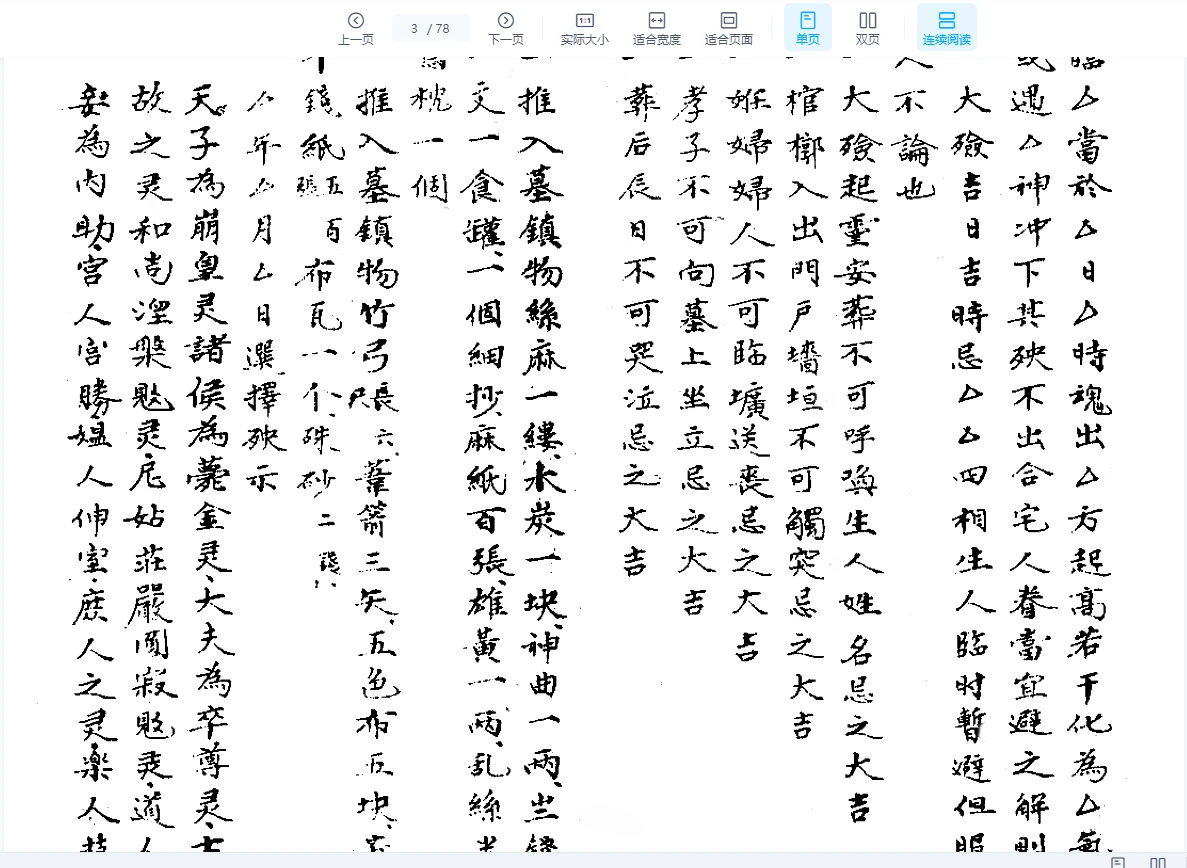 上一页
3 / 78
下一页
1:1
实际大小
适合宽度
适合页面
单页
双页
连续阅读
臨厶當於厶日厶時魂出厶方起高若干化為厶氣
或遇厶神冲下其殃不出合宅人眷當宜避之解則
大殮吉日吉時忌厶厶四相生人臨时暫避但眼
人不論也
大殮起靈安葬不可呼喚生人姓名忌之大吉
棺槨入出門戶墻垣不可觸突忌之大吉
妊婦婦人不可臨壙送喪忌之大吉
孝子不可向墓上坐立忌之大吉
葬后辰日不可哭泣忌之大吉
推入墓鎮物絲麻一縷、木炭一块、神曲一兩、
文一食罐、一個細抄、麻紙百張、雄黃一兩、乱絲
為枕一個
推入墓鎮物竹弓長尺六、葦箭三矢、五色布五块、
千錢、紙五百張布瓦一个、硃砂二錢八、
厶年厶月厶日選擇殃示
天子為崩皇灵諸侯為薨金灵、大夫為卒尊灵、士
故之灵和尚涅槃覡灵、尼姑莊嚴圓寂覡灵、道人
妾為内助、宫人宫勝、媪人伸室、庶人之灵、樂人